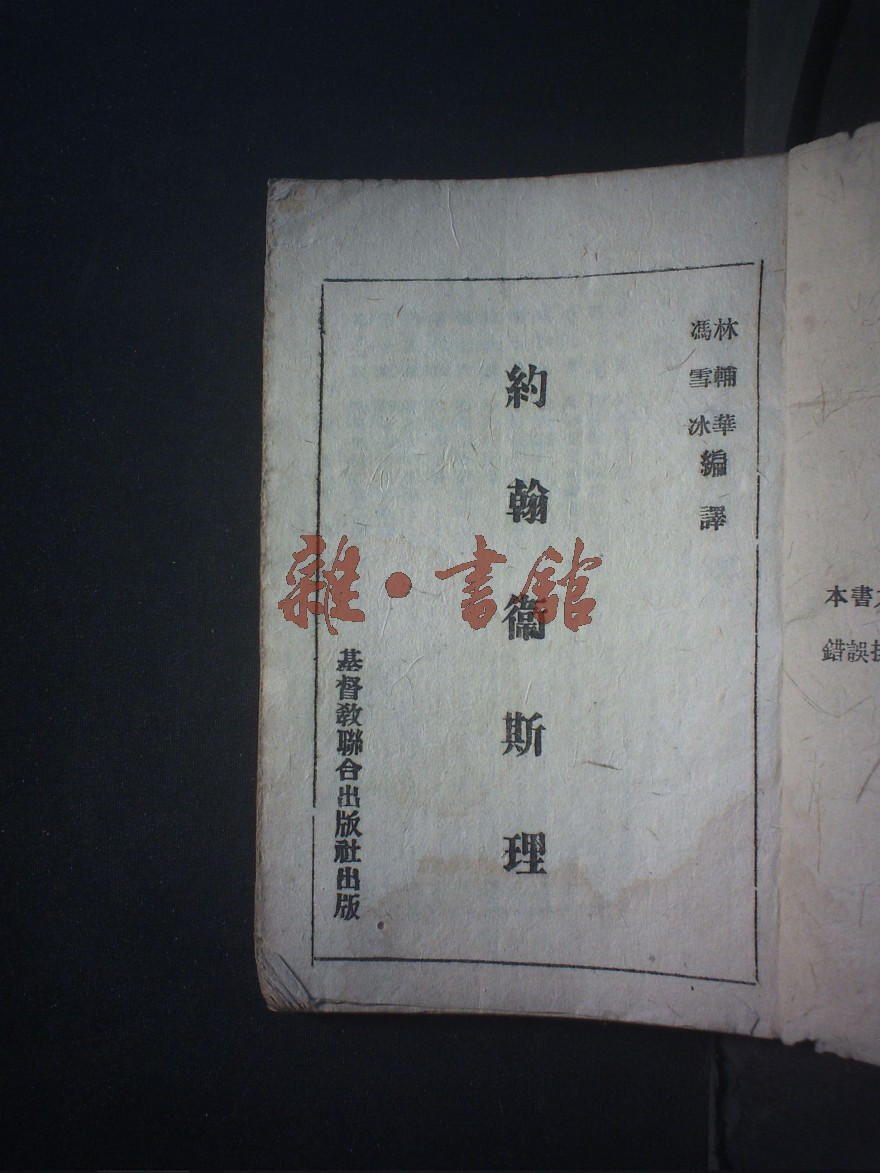 本書
錯誤
林輔華
馮雪冰
編譯
約翰衞斯理
基督教聯合出版社出版
雜·書館